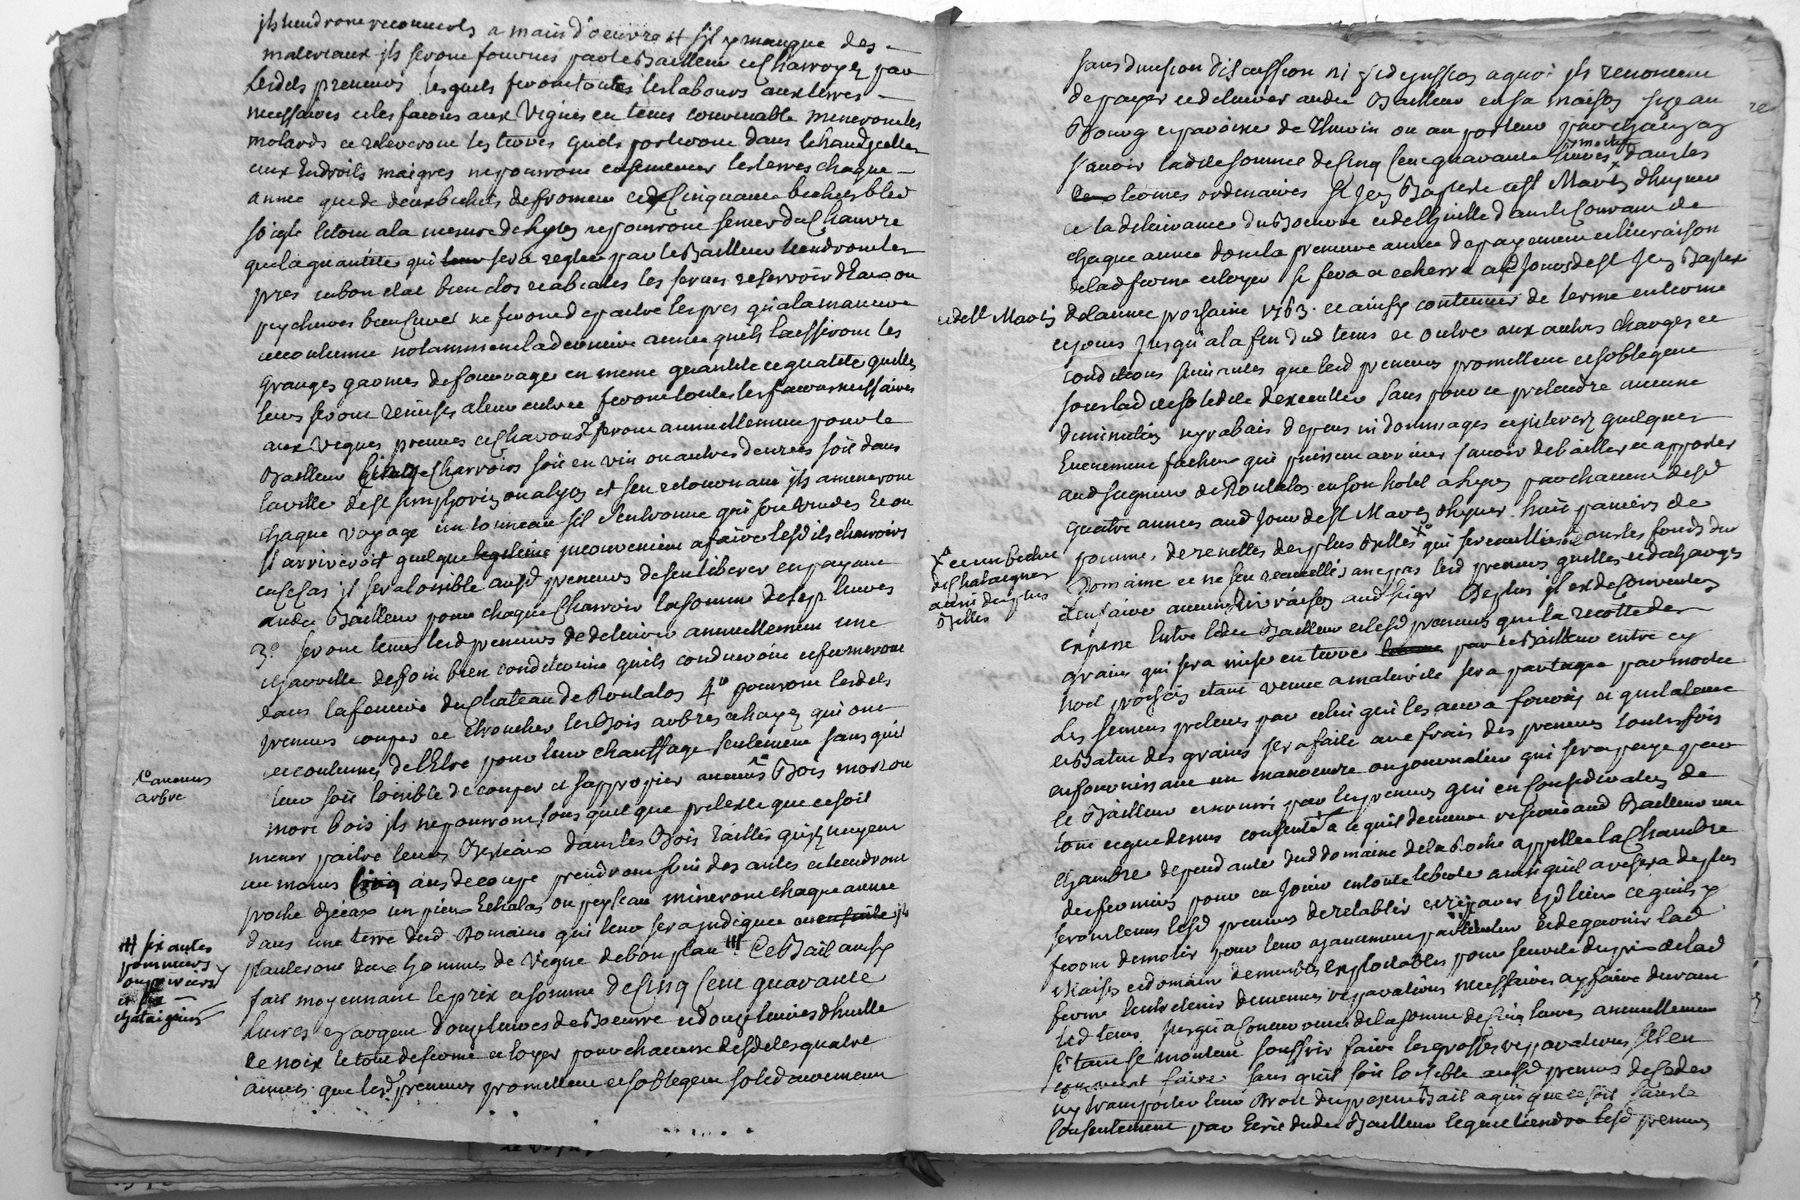 ils tiendront recouverts a main d'oeuvre et s'il y manque des
materiaux ils seront fournis par le Bailleur et charroyez par
lesdits preneurs lesquels feront toutes les labours aux terres
necessaires et les facons aux vignes en tems convenable mineront les
molards et releveront les terres quils porteront dans
aux Endroits maigres ne pourront ensemencer les terres chaque
année que de deux bichets de froment et de Cinquante bichets bled
soigle le tout a la mesure de ne pourront semer du Chanvre
que la quantité qui sera reglée par le Bailleur tiendront les
prés en bon etat bien clos reservoir
bien curés ne feront depaitre les prés qu'a la maniere
accoutumée notamment la derniere année quils laisseront les
granges garnies de fourrage en meme quantité et qualité quelles
leurs seront remises a leur entrée feront toutes les facons necessaires
aux vignes 2° feront annuellement pour le
Bailleur Charrois soit en vin ou autres denrées soit dans
la ville de st simphorien ou a lyon et s'en retournant ils ameneront
chaque voyage un tonneau s'il s'en trouve qui soit vuides Et ou
il arriveroit quelque inconvenient a faire lesdits charrois
en ce cas il sera loisible ausd preneurs de se liberer en payant
audit Bailleur pour chaque Charroir la somme de sept livres
3° seront tenus lesd preneurs de delivrer annuellement une
de foin bien conditionné quils conduiront et fermeront
dans la feniere du Chateau de 4° pourront lesdits
preneurs couper et ebrancher les Bois arbres et hayes qui ont
accoutumés de l'Etre pour leur chauffage seulement sans qu'il
leur soit loisible de couper et s'approprier aucuns Bois mort ou
mort bois ils ne pourront sous quelque pretexte que ce soit
mener paitre leurs Bestiaux dans les Bois taillis qu'ils n'ayent
au moins Cinq ans de coupe prendront soin des arbres et tiendront
proche d'iceux un pieu Echalas ou peyseau mineront chaque année
dans une terre dud Domaine qui leur sera indiquée ils
planteront deux hommes de vigne de bon plan Ce Bail ainsy
fait moyennant le prix et somme de Cinq Cent quarante
livres argent douze livres de Beurre et douze livres d'huille
de noix le tout de ferme et loyer pour chacune desdites quatre
années que lesd preneurs promettent et s'obligent solidairement
1° aucuns
arbre
six autres
pommiers
ou poiriers
et six
chataigniers
sans division discussion ni fidejussion a quoi ils renoncent
de payer et delivrer audit Bailleur en sa maison size au
Bourg et paroisse de Thurin ou au porteur
savoir ladite somme de Cinq Cent quarante livres moitié dans les
termes ordinaires st jean Baptiste et st Martin d'hyver
et la delivrance du Beurre et de l'huille dans le Courant de
chaque année dont la premiere année de payement et livraison
de lad ferme et loyer se fera a echera aud jours de st jean Baptiste
et de st Martin de l'année prochaine 1763. et ainsy continuer de terme en terme
et jours jusqu'a la fin dud tems et outre aux autres charges et
conditions susdites que lesd preneurs promettent et s'obligent
sous lad solidité d'executer sans pouvoir pretendre aucune
diminution ny rabais depens ni dommages quelques
Evenement facheux qui puissent arriver savoir de bailler et apporter
aud seigneur de en son hotel a lyon par chacune desd
quatre années aud jour de st Martin d'hyver huit paniers de
pomme, de renettes des plus belles qui se recueilliront dans les fonds du
Domaine et ne s'en recueillis ant pas lesd preneurs
d'en faire aucune livraison aud sieur De plus il est de Convention
expresse Entre ledit Bailleur et lesd preneurs que la recolte des
grains qui sera mise en terre par le Bailleur entre cy
noel prochain etant venue a maturité sera partagée par moitié
les semens prelevés par celui qui les aura fournis et que la levée
et Batue des grains sera faite aux frais des preneurs toutesfois
en fournissant un manoeuvre ou journalier qui sera payé par
le Bailleur et nourri par les preneurs qui en Consideration de
tout ce que dessus consentent a ce qu'il demeure reservé aud Bailleur une
chambre dependante dud domaine de la Roche appellée la Chambre
des fermiers pour en jouir en toute liberté ainsi quil avisera de plus
seront tenus lesd preneurs de retablir et reparer lesd lieux ce quils
feront demolir pour leur agencement particulier Et de garnir lad
maison et domaine de meubles Exploitables pour seureté du prix de lad
ferme l'entretenir de menues reparations necessaires a y faire durant
led tems jusqu'a Concurrence de la somme de Cinq livres annuellement
si tant se montent souffrir faire les grosses reparations s'il en
convient faire. sans qu'il soit loisible ausd preneurs de Ceder
ny transporter leur Droit du present Bail a qui que ce soit sans le
Consentement par Ecrit dudit Bailleur lequel tiendra lesd preneurs
et un bichet
de chataignes
aussi des plus
Belles